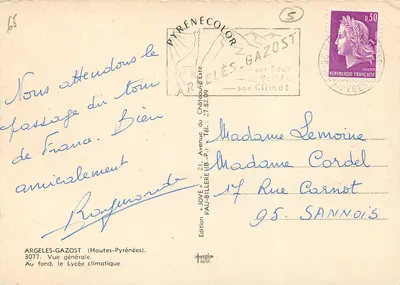 65
5
PYRÉNÉCOLOR
ARGELÈS-GAZOST
ses Eaux
sa Vallée
son Climat
0,50
REPUBLIQUE FRANÇAISE
Nous attendons le
passage du tour
de France. Bien
amicalement
Raymonde
Edition « JOVE » - 21, Avenue du Château-d'Este
PAU-BILLERE (B.-P.) - Tél. 27.82.09
Madame Lemoine
Madame Cordel
17 Rue Carnot
95 - SANNOIS
ARGELES-GAZOST (Hautes-Pyrénées).
3077: Vue générale.
Au fond, le Lycée climatique